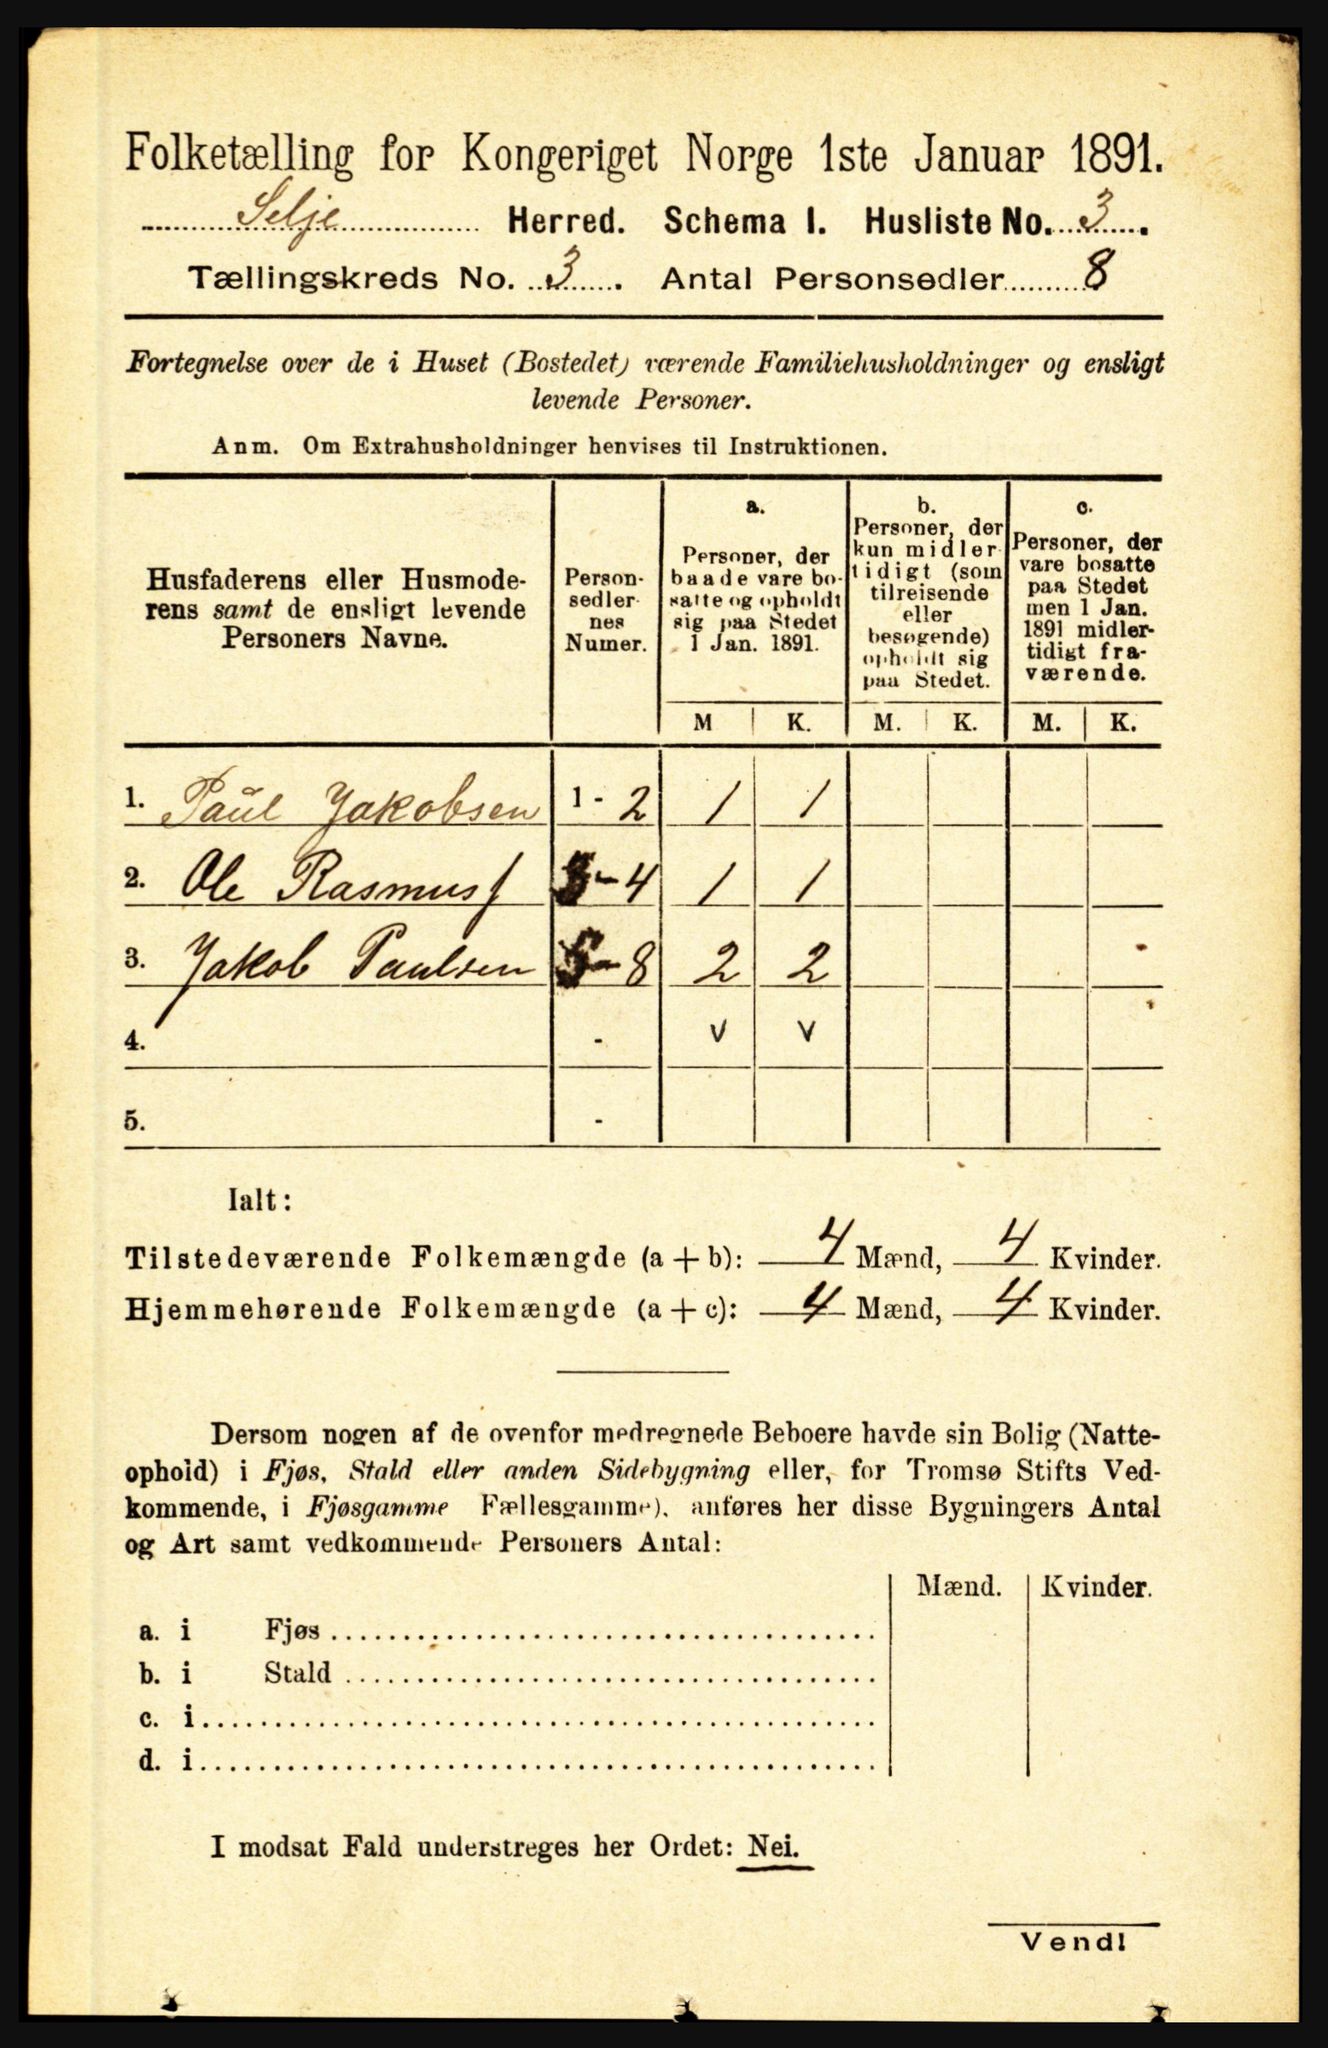 Folketælling for Kongeriget Norge 1ste Januar 1891.
Selje Herred. Schema I. Husliste No. 3.
Tællingskreds No. 3. Antal Personsedler 8
Fortegnelse over de i Huset (Bostedet) værende Familiehusholdninger og ensligt
levende Personer.
Anm. Om Extrahusholdninger henvises til Instruktionen.
Husfaderens eller Husmode-
rens samt de ensligt levende
Personers Navne.
Person-
sedler-
nes
Numer.
a.
Personer, der
baade vare bo-
satte og opholdt
sig paa Stedet
1 Jan. 1891.
b.
Personer, der
kun midler-
tidigt (som
tilreisende
eller
besøgende)
opholdt sig
paa Stedet.
c.
Personer, der
vare bosatte
paa Stedet
men 1 Jan.
1891 midler-
tidigt fra-
værende.
M K. M. K. M. K.
1. Paul Jakobsen 1 - 2 1 1
2. Ole Rasmuss 3 - 4 1 1
3. Jakob Paulsen 5 - 8 2 2
4. - v v
5. -
Ialt:
Tilstedeværende Folkemængde (a + b): 4 Mænd, 4 Kvinder.
Hjemmehørende Folkemængde (a + c): 4 Mænd, 4 Kvinder.
Dersom nogen af de ovenfor medregnede Beboere havde sin Bolig (Natte-
ophold) i Fjøs, Stald eller anden Sidebygning eller, for Tromsø Stifts Ved-
kommende, i Fjøsgamme Fællesgamme), anføres her disse Bygningers Antal
og Art samt vedkommende Personers Antal:
Mænd. Kvinder.
a. i Fjøs
b. i Stald
c. i
d. i
I modsat Fald understreges her Ordet: Nei.
Vend!